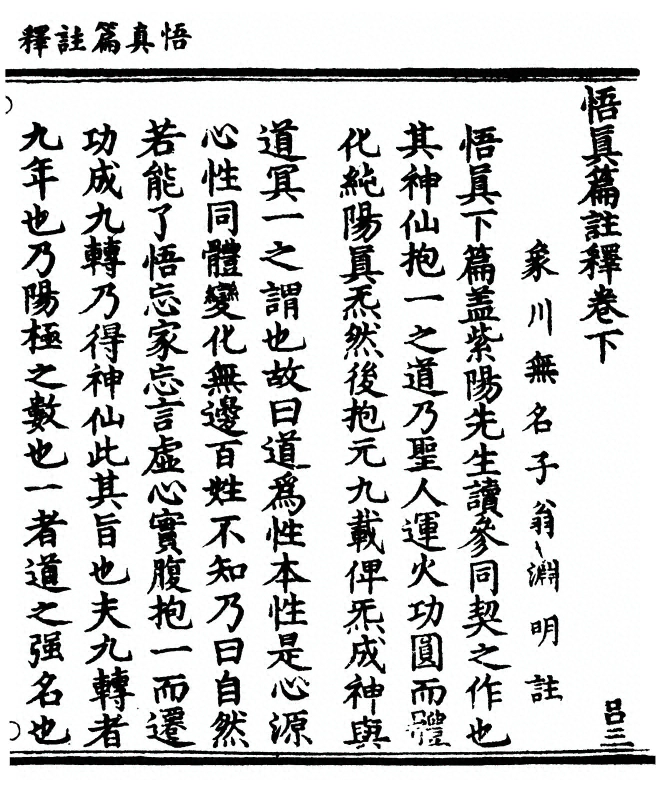 悟真篇註釋
悟眞篇註釋卷下
象川無名子翁淵明註
悟眞下篇盖紫陽先生讀參同契之作也
其神仙抱一之道乃聖人運火功圓而體
化純陽眞炁然後抱元九載俾炁成神與
道冥一之謂也故曰道爲性本性是心源
心性同體變化無邊百姓不知乃曰自然
若能了悟忘家忘言虛心實腹抱一而遷
功成九轉乃得神仙此其旨也夫九轉者
九年也乃陽極之數也一者道之强名也
呂三